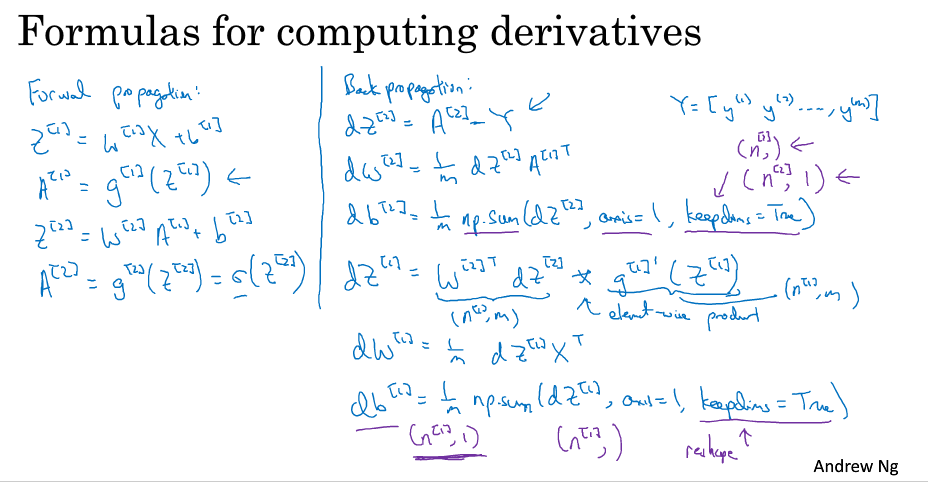 Formulas for computing derivatives
Forward propagation:
Z^[1] = W^[1]X + b^[1]
A^[1] = g^[1](Z^[1]) ←
Z^[2] = W^[2] A^[1] + b^[2]
A^[2] = g^[2](Z^[2]) = σ(Z^[2])
Back propagation:
dZ^[2] = A^[2] - Y ↙
dW^[2] = 1/m dZ^[2] A^[1]T
db^[2] = 1/m np.sum(dZ^[2], axis=1, keepdims=True)
dZ^[1] = W^[2]T dZ^[2] * g^[1]'(Z^[1])
(n^[1], m) ↖ element-wise product (n^[1], m)
dW^[1] = 1/m dZ^[1] X^T
db^[1] = 1/m np.sum(dZ^[1], axis=1, keepdims=True)
(n^[1], 1) (n^[1],) reshape ↑
Y = [y^(1) y^(2) ...., y^(m)]
(n^[1],) ←
↙ (n^[2], 1) ←
Andrew Ng